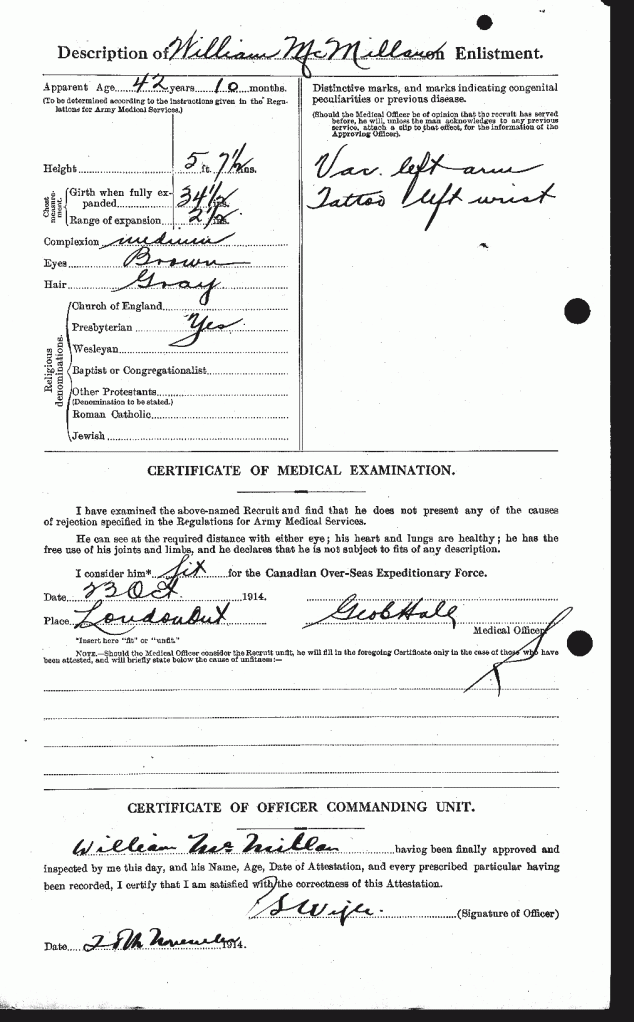 Description of William McMillan on Enlistment.
Apparent Age 42 years 10 months.
(To be determined according to the instructions given in the Regulations for Army Medical Services.)
Height 5 ft. 7 1/2 ins.
Chest measurement.
Girth when fully expanded 34 1/2 ins.
Range of expansion 2 1/2 ins.
Complexion medium
Eyes Brown
Hair Gray
Religious denominations.
Church of England
Presbyterian Yes
Wesleyan
Baptist or Congregationalist
Other Protestants
(Denomination to be stated.)
Roman Catholic
Jewish
Distinctive marks, and marks indicating congenital
peculiarities or previous disease.
(Should the Medical Officer be of opinion that the recruit has served
before, he will, unless the man acknowledges to any previous
service, attach a slip to that effect, for the information of the
Approving Officer).
Vac. left arm
Tattoo left wrist
CERTIFICATE OF MEDICAL EXAMINATION.
I have examined the above-named Recruit and find that he does not present any of the causes
of rejection specified in the Regulations for Army Medical Services.
He can see at the required distance with either eye; his heart and lungs are healthy; he has the
free use of his joints and limbs, and he declares that he is not subject to fits of any description.
I consider him* fit for the Canadian Over-Seas Expeditionary Force.
Date 23 Oct 1914.
Place London Ont Geo Hale
Medical Officer
*Insert here "fit" or "unfit."
NOTE.—Should the Medical Officer consider the Recruit unfit, he will fill in the foregoing Certificate only in the case of those who have
been attested, and will briefly state below the cause of unfitness:—
CERTIFICATE OF OFFICER COMMANDING UNIT.
William McMillan having been finally approved and
inspected by me this day, and his Name, Age, Date of Attestation, and every prescribed particular having
been recorded, I certify that I am satisfied with the correctness of this Attestation.
(Signature of Officer)
Date 25th November 1914.